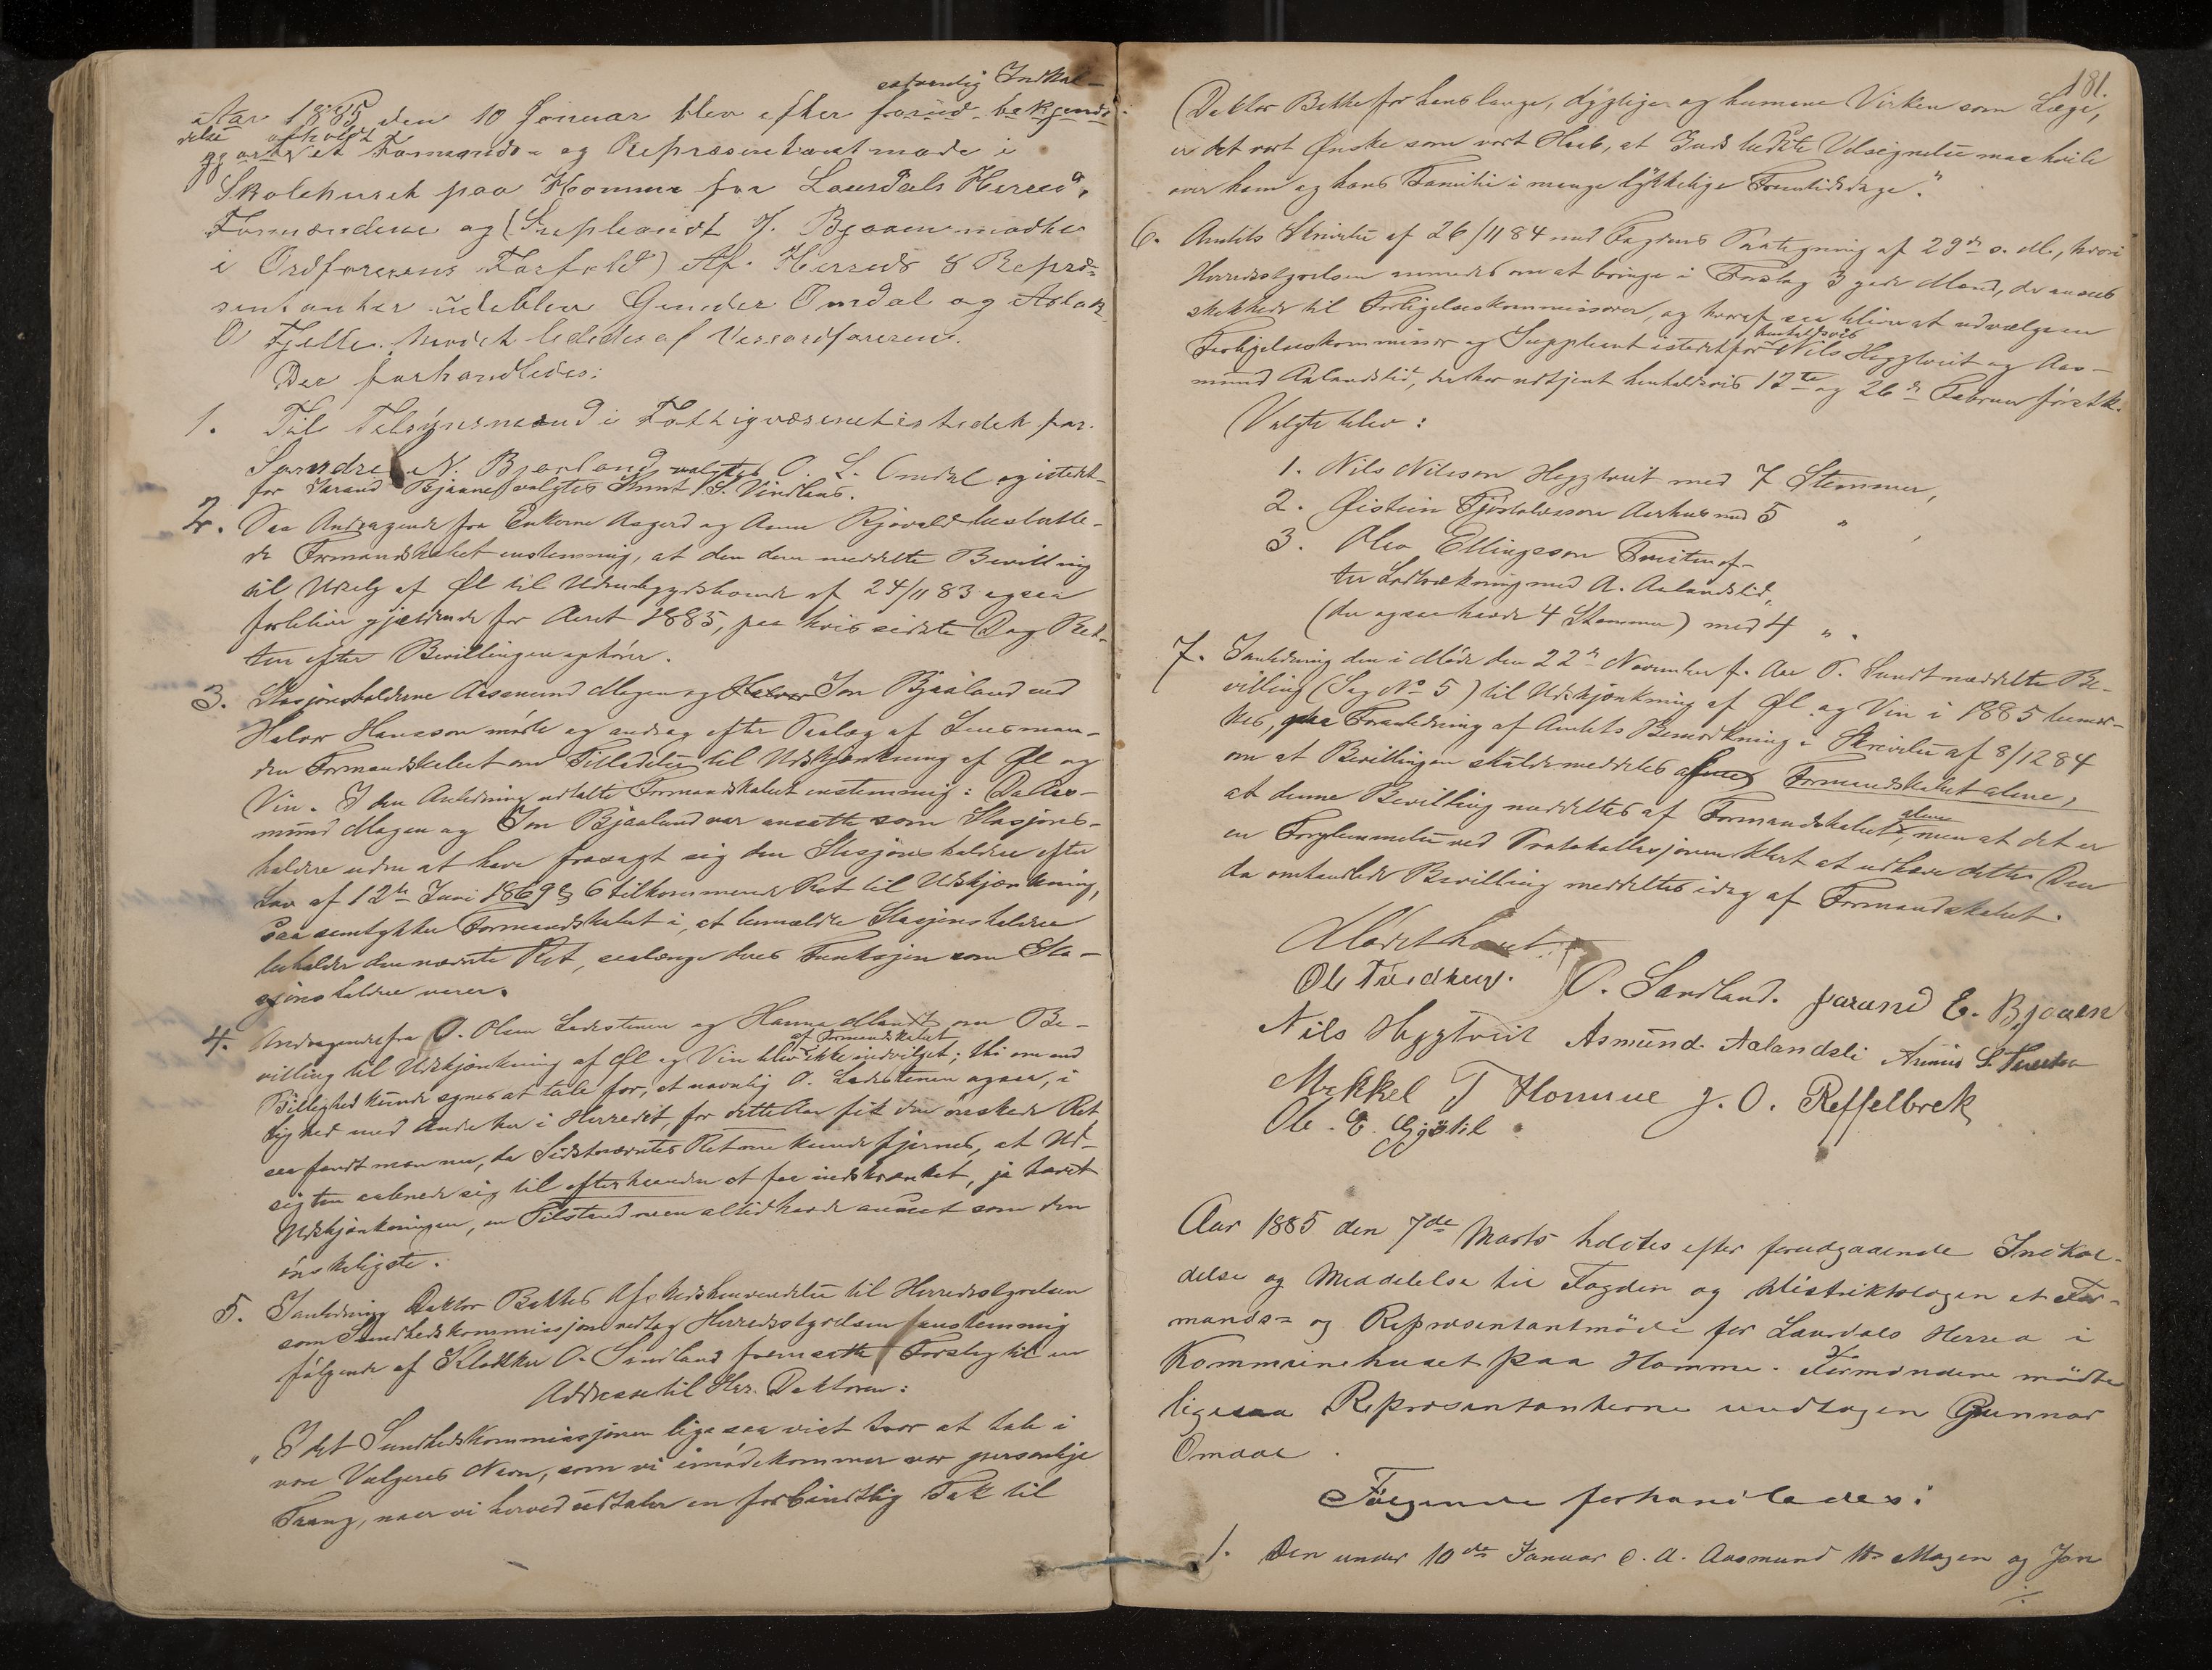 estændig Indkal-
Aar 1885 den 10 Januar blev efter forud-bekjendt-
delse afholdt
gjort et Formands- og Repræsentantmøde i
Skolehuset paa Homme for Laurdals Herred.
Formændene og (Supleandt J. Bjaaen mødte
i Ordførerens Forfald) Af Herreds 8 Repræ-
sentanter udeblev Gunder Omdal og Aslak
O Fjelle. Mødet lededes af Viceordføreren.
Der forhandledes:
1. Til Tilsynsmand i Fattigvæsenet istedet for
Sondre N. Bjorland valgtes O. L. Omdal og istedet-
for Jarand Bjaaen valgtes Knut S. Vindlaus.
2. Paa Andragende fra Enkerne Aagerd og Anne Kjøvald beslutte-
de Formandskabet enstemmig, at den dem meddelte Bevilling
til Udsalg af Øl til Udenbygdsboende af 24/11 83 ogsaa
forbliver gjældende for Aaret 1885, paa hvis sidste Dag Ret-
ten efter Bevillingen ophører.
3. Stasjonsholderne Aasmund Mogen og Jon Bjaaland ved
Halvor Hansson mødte og androg efter Paalæg af Lensman-
den Formandskabet om Tilladelse til Udskjænkning af Øl og
Vin. I den Anledning udtalte Formandskabet enstemmig: Da Aas-
mund Mogen og Jon Bjaaland var ansatte som Stasjons-
holdere uden at have frasagt sig den Stasjonsholdere efter
Lov af 12te Juni 1869 § 6 tilkommende Ret til Udskjænkning,
saa samtykker Formandskabet i, at bemeldte Stasjonsholdere
beholder den nævnte Ret, saalænge deres Funksjon som Sta-
sjonsholdere varer.
4. Andragende fra O. Olsen Ladestenen og Hanna om Be-
af Formandskabet
villing til Udskjænkning af Øl og Vin blev ikke indvilget; thi om end
Billighed kunde synes at tale for, at navnlig O. Ladestenen ogsaa, i
Lighed med Andre her i Herredet, for dette Aar fik den ønskede Ret
saa fandt man nu, da Sidstnævntes Ret kunde fjernes, at Ud-
sigten aabnede sig til efterhaanden at faa indskrænket, ja hævet
Udskjænkningen, en Tilstand man altid havde anseet som den
ønskeligste.
5. I anledning Doktor Bakkes Afskedshenvendelse til Herredsstyrelsen
som Sundhedskommissjon vedtog Herredsstyrelsen enstemmig
følgende af Klokker O. Sandland fremsatte Forslag til en
Addresse til Hrr. Doktoren:
"I det Sundhedskommissjonen ligesaa vist tror at tale i
vore Vælgeres Navn, som vi imødekommer vor personlige
Trang, naar vi herved udtaler en forbindtlig Tak til
181.
Doktor Bakke for hans lange, dygtige og humane Virken som Læge,
er det vort Ønske som vort Haab, at Guds bedste Velsignelse maa hvile
over ham og hans Familie i mange lykkelige Fremtidsdage."
6. Amtets Skrivelse af 26/11 84 med Fogdens Paategning af 29de s. M., hvori
Herredsstyrelsen anmodes om at bringe i Forslag 3 gode Mænd, der ansees
skikkede til Forligelseskommissærer, og hvoraf saa bliver at udvælge en
henholdsvis
Forligelseskommissær og Suppleant istedetfor Nils Heggtveit og Aas-
mund Aalandslid, der har udtjent henholdsvis 12te og 26de Februar førstk.
Valgte blev:
1. Nils Nilsson Heggtveit med 7 Stemmer,
2. Øistein Gjøstolvsson Aarhus med 5 " ,
3. Olav Ellingsson Tveiten ef-
ter Lodtrækning med A. Aalandslid,
(der ogsaa havde 4 Stemmer) med 4 " .
7. I anledning den i Møde den 22de November f. Aar O. Sundt meddelte Be-
villing (Sag No 5) til Udskjænkning af Øl og Vin i 1885 bemær-
kes, paa Foranledning af Amtets Bemærkning i Skrivelse af 8/12 84
om at Bevillingen skulde meddeles af Formandskabet alene,
alene
at denne Bevilling meddeltes af Formandskabet, men at det er
en Forglemmelse ved Protokollasjonen klart at udhæve dette. Den
da omhandlede Bevilling meddeltes idag af Formandskabet.
Mødet hævet.
Ole O. Sandland. Jarand E. Bjaaen
Nils Heggtveit Asmund Aalandsli
Mikkel T Homme J. O. Reffelbrek
Ole. E. Gjøtil
Aar 1885 den 7de Marts holdtes efter forudgaaende Indkal-
delse og Meddelelse til Fogden og Distriktslægen et For-
mands- og Repræsentantmøde for Laurdals Herred i
Kommunehuset paa Homme. Formændene mødte
ligesaa Repræsentanterne undtagen Gunnar
Omdal.
Følgende forhandledes:
1. Den under 10de Januar d. A. Aasmund Mogen og Jon
./.